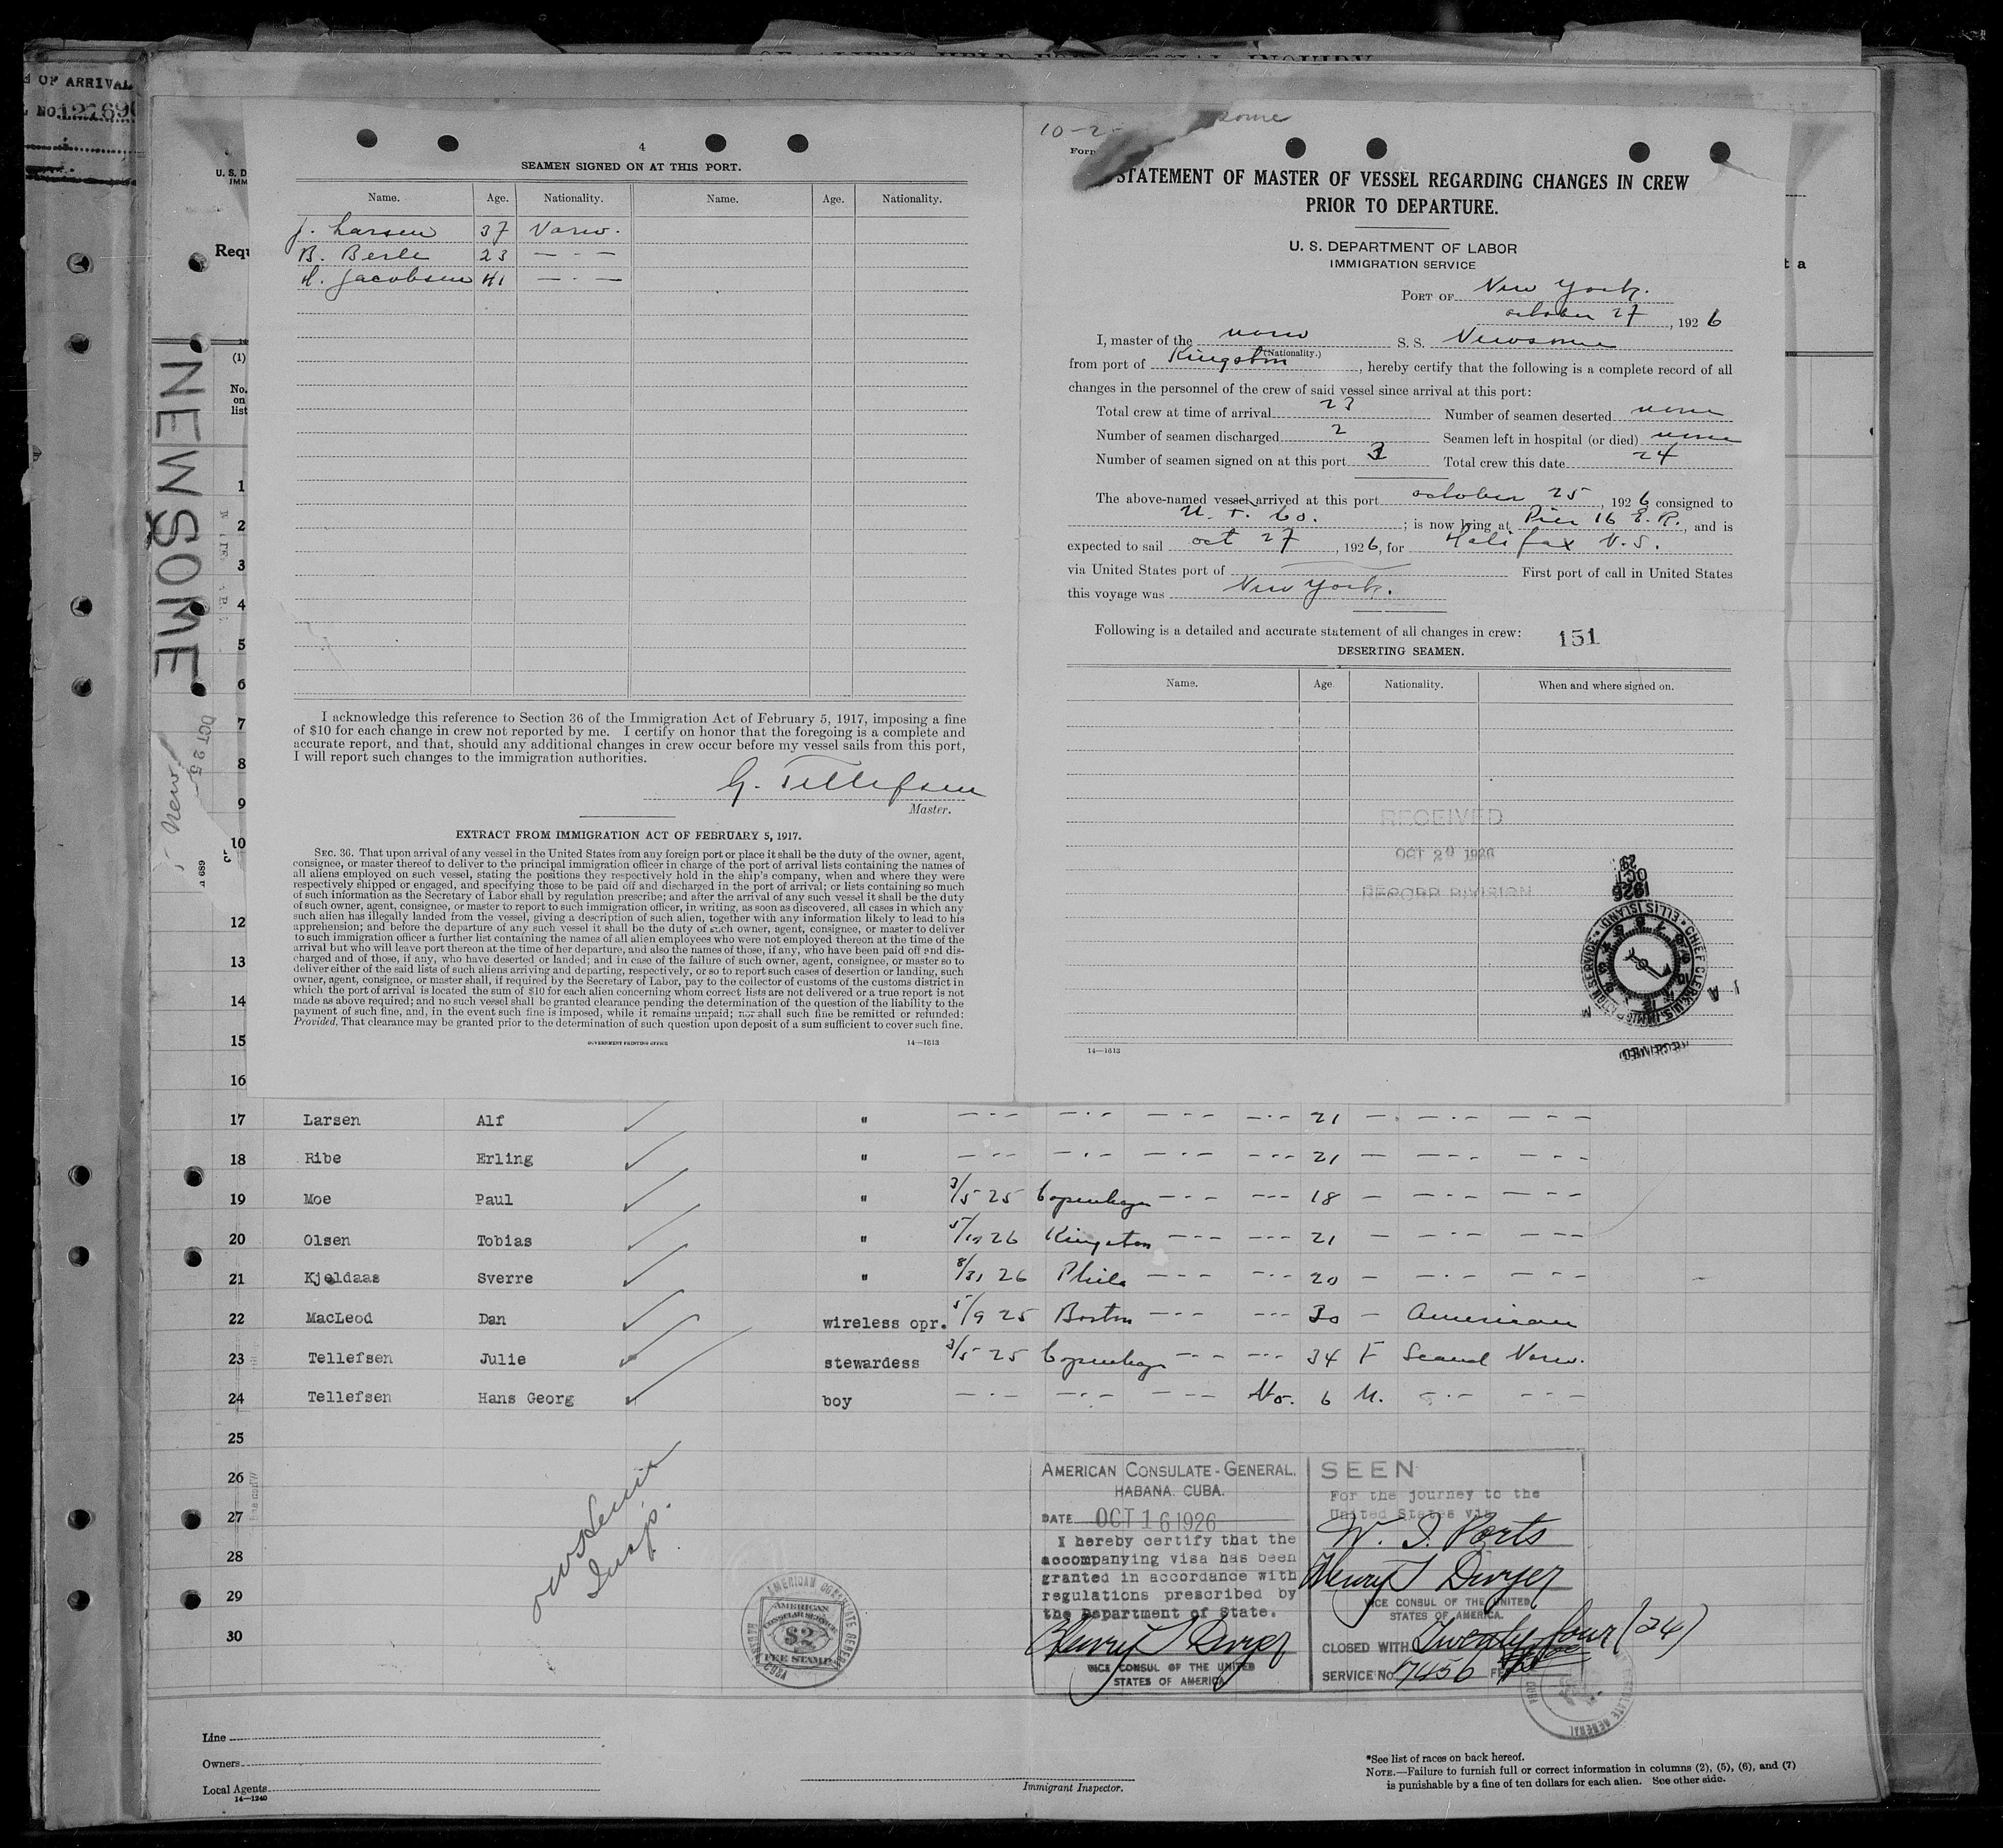 OF ARRIVAL
NO. 12769
NEWSOME
OCT 25
New
U. S. D
IMM
Requ
(1)
No.
on
list
4
SEAMEN SIGNED ON AT THIS PORT.
Name. Age. Nationality. Name. Age. Nationality.
J. Larsen 37 Norw.
B. Berle 23 — - —
H. Jacobsen 41 — - —
I acknowledge this reference to Section 36 of the Immigration Act of February 5, 1917, imposing a fine
of $10 for each change in crew not reported by me. I certify on honor that the foregoing is a complete and
accurate report, and that, should any additional changes in crew occur before my vessel sails from this port,
I will report such changes to the immigration authorities.
G. Tellefsen
Master.
EXTRACT FROM IMMIGRATION ACT OF FEBRUARY 5, 1917.
SEC. 36. That upon arrival of any vessel in the United States from any foreign port or place it shall be the duty of the owner, agent,
consignee, or master thereof to deliver to the principal immigration officer in charge of the port of arrival lists containing the names of
all aliens employed on such vessel, stating the positions they respectively hold in the ship's company, when and where they were
respectively shipped or engaged, and specifying those to be paid off and discharged in the port of arrival; or lists containing so much
of such information as the Secretary of Labor shall by regulation prescribe; and after the arrival of any such vessel it shall be the duty
of such owner, agent, consignee, or master to report to such immigration officer, in writing, as soon as discovered, all cases in which any
such alien has illegally landed from the vessel, giving a description of such alien, together with any information likely to lead to his
apprehension; and before the departure of any such vessel it shall be the duty of such owner, agent, consignee, or master to deliver
to such immigration officer a further list containing the names of all alien employees who were not employed thereon at the time of the
arrival but who will leave port thereon at the time of her departure, and also the names of those, if any, who have been paid off and dis-
charged and of those, if any, who have deserted or landed; and in case of the failure of such owner, agent, consignee, or master so to
deliver either of the said lists of such aliens arriving and departing, respectively, or so to report such cases of desertion or landing, such
owner, agent, consignee, or master shall, if required by the Secretary of Labor, pay to the collector of customs of the customs district in
which the port of arrival is located the sum of $10 for each alien concerning whom correct lists are not delivered or a true report is not
made as above required; and no such vessel shall be granted clearance pending the determination of the question of the liability to the
payment of such fine, and, in the event such fine is imposed, while it remains unpaid; nor shall such fine be remitted or refunded:
Provided, That clearance may be granted prior to the determination of such question upon deposit of a sum sufficient to cover such fine.
GOVERNMENT PRINTING OFFICE 14—1613
10-2-
Form
STATEMENT OF MASTER OF VESSEL REGARDING CHANGES IN CREW
PRIOR TO DEPARTURE.
U. S. DEPARTMENT OF LABOR
IMMIGRATION SERVICE
PORT OF New York.
october 27, 1926
I, master of the norw S. S. Newsome
(Nationality.)
from port of Kingston, hereby certify that the following is a complete record of all
changes in the personnel of the crew of said vessel since arrival at this port:
Total crew at time of arrival 23 Number of seamen deserted none
Number of seamen discharged 2 Seamen left in hospital (or died) none
Number of seamen signed on at this port 3 Total crew this date 24
The above-named vessel arrived at this port october 25, 1926 consigned to
U. F. Co. ; is now lying at Pier 16 E. R., and is
expected to sail oct 27, 1926, for Halifax N.S.
via United States port of — First port of call in United States
this voyage was New York.
Following is a detailed and accurate statement of all changes in crew: 151
DESERTING SEAMEN.
Name. Age. Nationality. When and where signed on.
RECEIVED
OCT 29 1926
RECORD DIVISION
29
OCT
1926
CHIEF CLERK U.S. IMMIGRATION SERVICE • ELLIS ISLAND •
RECEIVED
14—1613
1
2
3
4
5
6
7
8
9
10
12
13
14
15
16
17 Larsen Alf " — - — 21
18 Ribe Erling " — - — 21
19 Moe Paul " 3/5 25 Copenhagen 18
20 Olsen Tobias " 5/10 26 Kingston 21
21 Kjeldaas Sverre " 8/31 26 Phila 20
22 MacLeod Dan wireless opr. 5/9 25 Boston 30 American
23 Tellefsen Julie stewardess 3/5 25 Copenhagen 34 F Scand Norw.
24 Tellefsen Hans Georg boy No. 6 M.
25
26
27
28
29
30
Insp.
AMERICAN CONSULATE GENERAL
AMERICAN
CONSULAR SERVICE
$2
FEE STAMP
AMERICAN CONSULATE-GENERAL.
HABANA. CUBA.
DATE OCT 16 1926
I hereby certify that the
accompanying visa has been
granted in accordance with
regulations prescribed by
the Department of State.
Henry T Dwyer
VICE CONSUL OF THE UNITED
STATES OF AMERICA.
SEEN
For the journey to the
United States via
W. I. Ports
Henry T Dwyer
VICE CONSUL OF THE UNITED
STATES OF AMERICA.
CLOSED WITH Twenty four (24)
SERVICE No. 7456
Line
Owners
Local Agents
14—1240
Immigrant Inspector.
*See list of races on back hereof.
NOTE.—Failure to furnish full or correct information in columns (2), (5), (6), and (7)
is punishable by a fine of ten dollars for each alien. See other side.